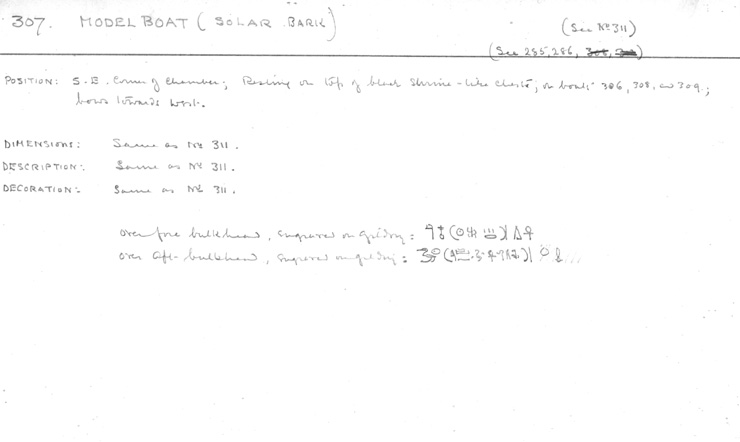 307. MODEL BOAT (SOLAR BARK)
(See Nº 311)
(See 285, 286, 308, 
POSITION: S.E. Corner of Chamber; Resting on top of black shrine-like chests; on boats 306, 308, and 309.;
bows towards West.
DIMENSIONS: Same as Nº 311.
DESCRIPTION: Same as Nº 311.
DECORATION: Same as Nº 311.
over fore bulkhead, engraved on gilding:
over aft-bulkhead, engraved on gilding: